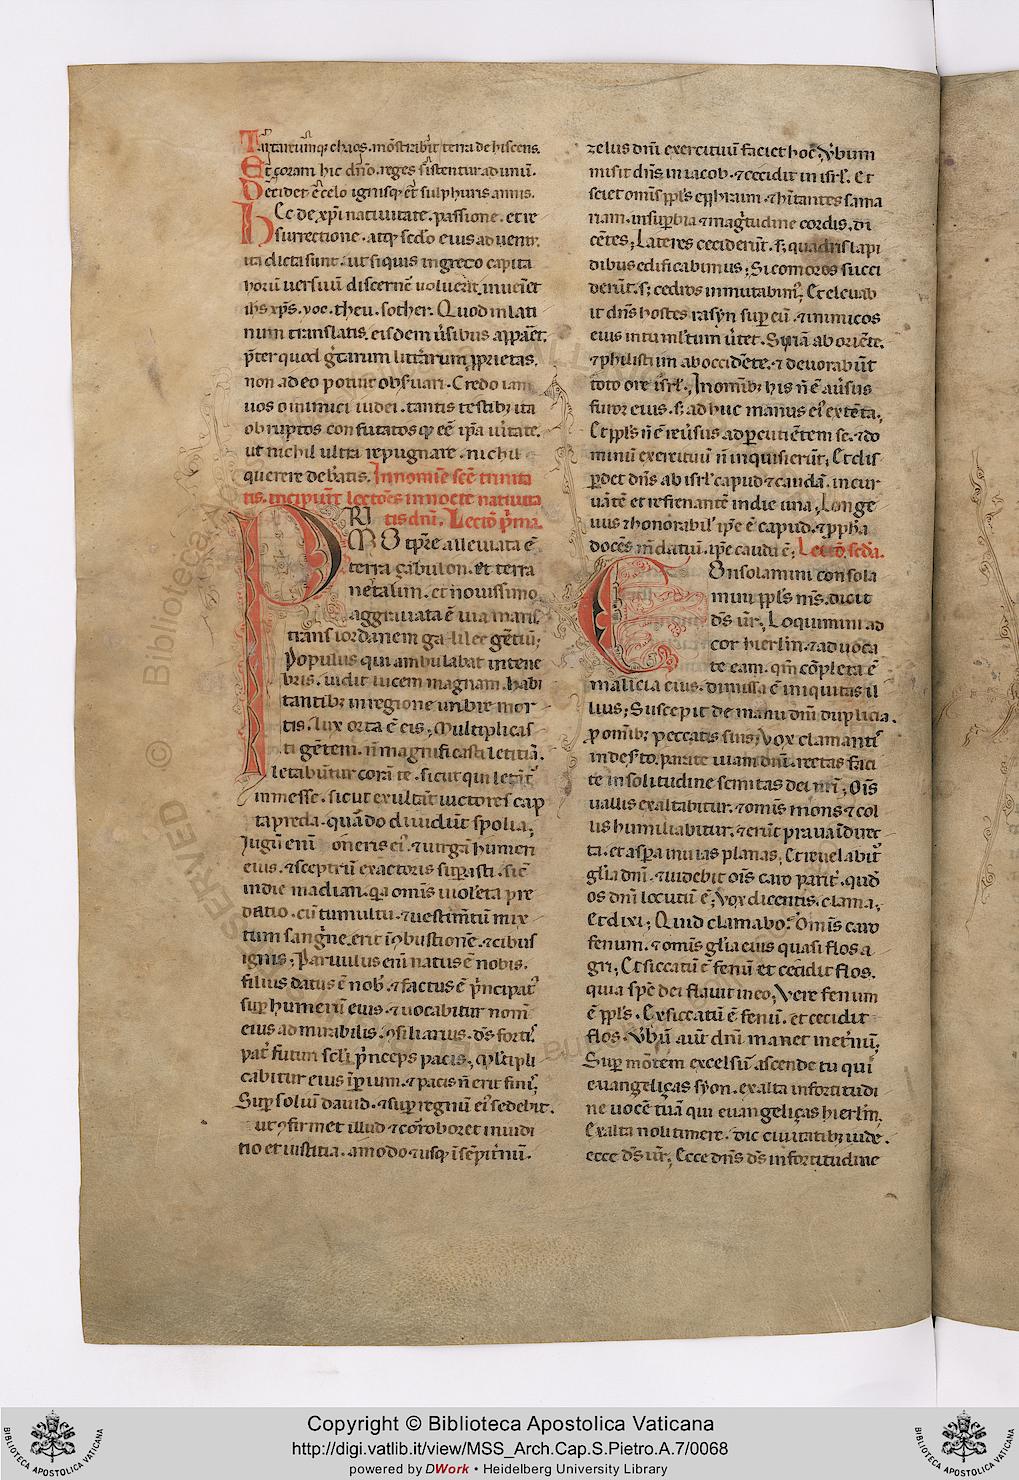 Tartarumq; chaos. mõstrabit terra dehiscens.
Et coram hic dño. reges sistentur ad unũ.
Decidet e celo ignisq; et sulphuris amnis.
Hec de xp̃i nativitate. passione. et re
surrectione. atq; sedo eius adventu.
ita dicta sunt. ut siquis in greco capita
horũ versuũ discernẽ voluerit. inveniet
ihs xp̃s. yoc. theu. sother. Quod in lati
num translatis. eisdem v̾sibus apparet.
p̃ter quod g̃carum litt̾arum proprietas.
non adeo potuit obs̾vari. Credo iam
vos o inimici iudei. tantis testib; ita
obruptos confutatosq; eẽ ip̃a veritate.
ut nichil ultra repugnare. nichil
querere debeatis. In nomine scẽ trinita
tis. incipiunt lectões in nocte nativita
tis dñi. Lectio p̃ma.
PRI
MO tp̃re alleviata ẽ
terra çabulon. et terra
neptalim. et novissimo
aggravata ẽ via maris
trans iordanem galilee gẽtiũ;
Populus qui ambulabat in tene
bris. vidit lucem magnam. habi
tantib; in regione umbre mor
tis. lux orta ẽ eis; Multiplicas
ti gẽtem. ñ magnificasti letitiã.
letabũtur corã te. sicut qui letãt̾
in messe. sicut exultãt victores cap
ta preda. quãdo dividũt spolia;
Jugũ enĩ oneris ei̾. ⁊ virgã humeri
eius. ⁊ sceptrũ exactoris sup̱asti. sic̃
in die madian. q̃a omĩs violẽta pre
datio. cũ tumultu. ⁊ vestim̃tũ mix
tum sang̃ne. erit ĩ ꝯbustionẽ. ⁊ cibus
ignis; Parvulus enĩ natus ẽ nobis.
filius datus ẽ nob̾. ⁊ factus ẽ p̃ncipat̾
sup̱ humerũ eius. ⁊ vocabitur nom̃
eius admirabilis. ꝯsiliarius. ds̃ fortis.
pat̾ futuri scl̃i p̃nceps pacis; Mltipli
cabitur eius ĩp̱ium. ⁊ pacis ñ erit finis;
Sup̱ soliũ david. ⁊ sup̱ regnũ ei̾ sedebit.
ut ꝯfirmet illud ⁊ cõroboret in iudi
tio et iustitia. amodo ⁊ usq; ĩ sẽpit̾nũ.
zelus dñi exercituũ faciet hoc̃; V̾bum
misit dñs in iacob. ⁊ cecidit in isrl̃. Et
sciet omĩs pp̃ls ephraim. ⁊ hĩtantes sama
riam. in sup̱bia ⁊ mag̃tudine cordis. di
cẽtes; Lateres ceciderũt. s; quadris lapi
dibus edificabimus; Sicomoros succi
derũt. s; cedros inmutabim̾; Et elevab
it dñs hostes rasyn sup̱ eũ. ⁊ inimicos
eius in tumltum v̾tet. Syriã ab oriẽte.
⁊ philistiim ab occidẽte. ⁊ devorabũt
toto ore isrl̃. In omĩb; his ñ ẽ av̾sus
furor eius. s; adhuc manus ei̾ extẽta;
Et pp̃ls ñ ẽ rev̾sus ad p̱cutiẽtem se. ⁊ do
minũ exercituũ ñ inquisierũt; Et dis
p̱det dñs ab isrl̃ capud ⁊ caudã. incur
vãtẽ et refrenantẽ in die una; Longe
vus ⁊ honorabil̾ ip̃e ẽ capud. ⁊ p̱ph̃a
docẽs m̃datiũ. ip̃e cauda ẽ; Lectio. seda.
Consolamini consola
mini pp̃ls m̃s. dicit
ds̃ vr̃; Loquimini ad
cor hierlm̃. ⁊ advoca
te eam. qm̃ cõpleta ẽ
malicia eius. dimissa ẽ iniquitas il
lius; Suscepit de manu dñi duplicia.
p̱ omĩb; peccatis suis; Vox clamantis
in des̾to. parate viam dñi. rectas faci
te in solitudine semitas dei nr̃i; Oĩs
vallis exaltabitur. ⁊ omĩs mons ⁊ col
lis humiliabitur. ⁊ erũt prava ĩ direc
ta. et asp̱a in vias planas; Et revelabit̾
gl̃ia dñi. ⁊ videbit oĩs caro parit̾. quõ
os dñi locutũ ẽ; Vox dicentis. clama;
Et dixi; Quid clamabo? Omĩs caro
fenum. ⁊ omĩs gl̃ia eius quasi flos a
gri; Et siccatũ ẽ fenũ et cecidit flos.
quia sp̃c dei flavit in eo; Vere fenum
ẽ pp̃ls. Exsiccatũ ẽ fenũ. et cecidit
flos. V̾bũ aut̃ dñi manet in et̾nũ;
Sup̱ mõtem excelsũ ascende tu qui
evangeliças syon. exalta in fortitudi
ne vocẽ tuã qui evangeliças hierlm̃.
Exalta noli timere. Dic civitatib; iude.
ecce ds̃ vr̃; Ecce dñs ds̃ in fortitudine
Copyright © Biblioteca Apostolica Vaticana
http://digi.vatlib.it/view/MSS_Arch.Cap.S.Pietro.A.7/0068
powered by DWork • Heidelberg University Library
BIBLIOTECA APOSTOLICA VATICANA
BIBLIOTECA APOSTOLICA VATICANA